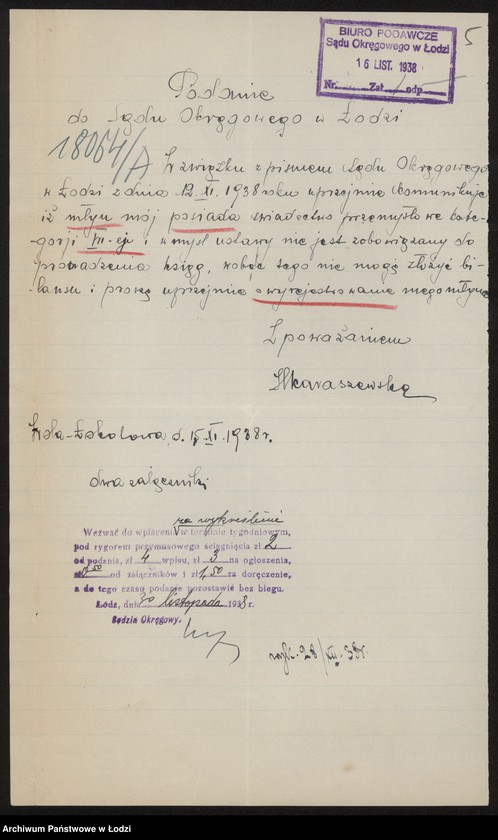 BIURO PODAWCZE
Sądu Okręgowego w Łodzi
16 LIST. 1938
Nr. Zał. odp.
5
Podanie
do Sądu Okręgowego w Łodzi
18064/A
W związku z pismem Sądu Okręgowego
w Łodzi z dnia 12.XI.1938 roku uprzejmie komunikuję
iż młyn mój posiada świadectwo przemysłowe kate-
gorji VII-ej i w myśl ustawy nie jest zobowiązany do
prowadzenia ksiąg, wobec tego nie mogę złożyć bi-
-lansu i proszę uprzejmie o wyrejestrowanie mego młyna
Z poważaniem
Skaraszewska
Wola-Zakolowa, d. 15.XI.1938 r.
dwa załączniki
za wykreślenie
Wezwać do wpłacenia w terminie tygodniowym,
pod rygorem przymusowego ściągnięcia zł 2
od podania, zł 4 wpisu, zł 3 na ogłoszenia,
zł 0 50 od załączników i zł 1,50 za doręczenie,
a do tego czasu podanie pozostawić bez biegu.
Łódź, dnia 30 listopada 1938 r.
Sędzia Okręgowy.
wyk. 28/XII-38r.
Archiwum Państwowe w Łodzi